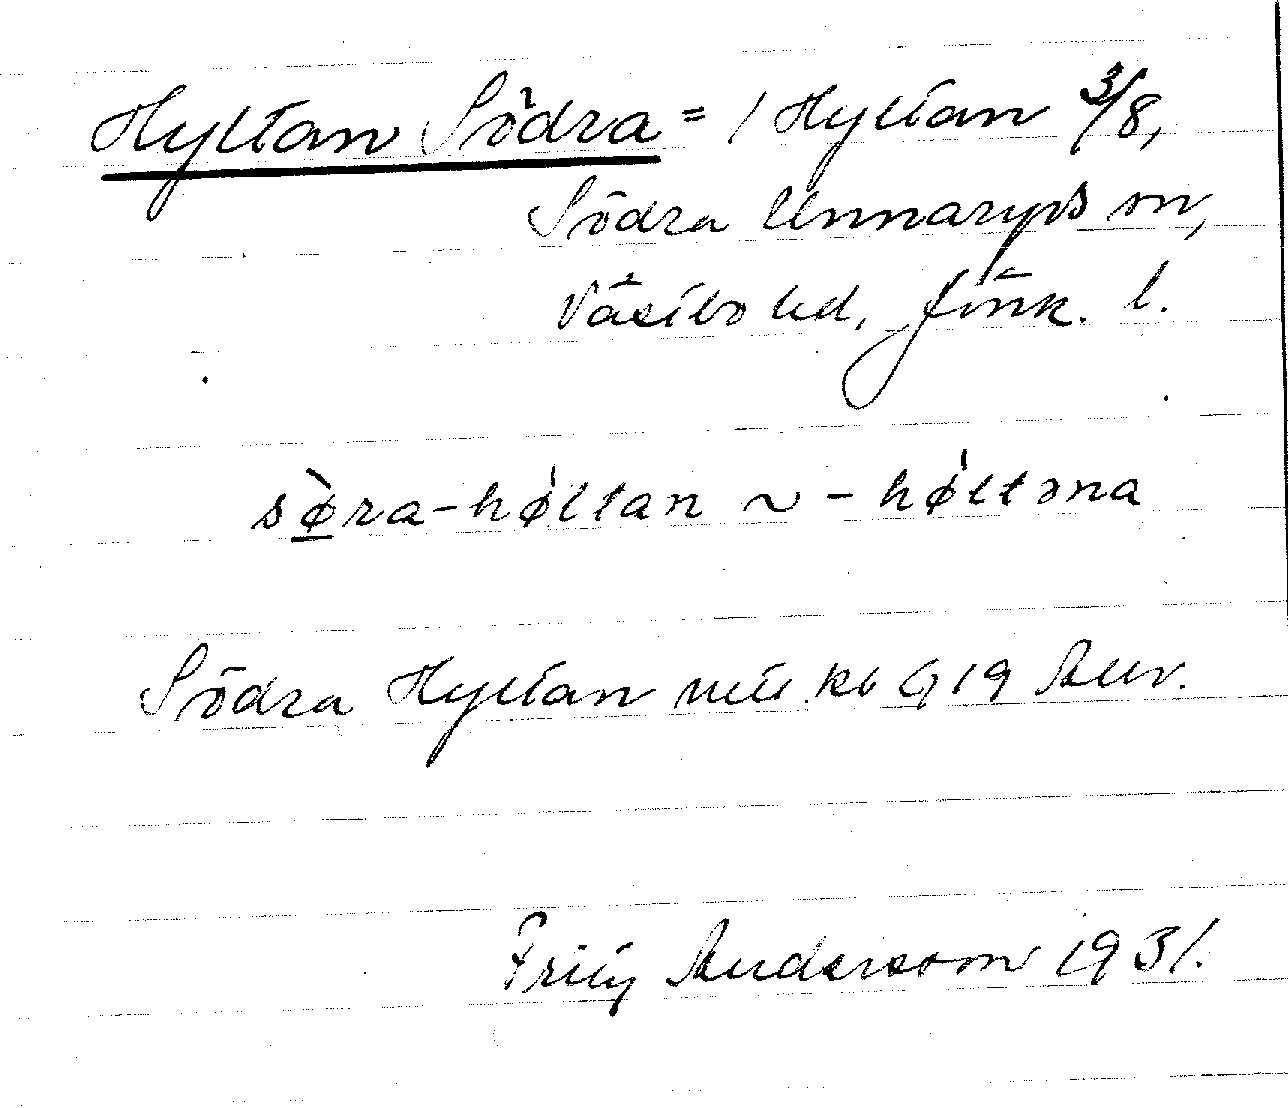 Hyltan Södra = 1 Hyltan 3/8,
Södra Unnaryds sn,
Västbo hd, Jönk. l.
sø̀ra-hǿltan ~ -hǿltəna
Södra Hyltan utt. kb 1919
Fritz Andersson 1931.